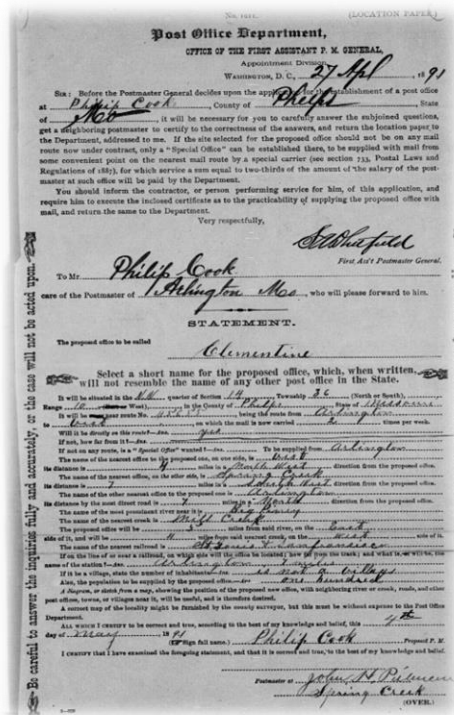 No. 1011.
(LOCATION PAPER)
Post Office Department,
OFFICE OF THE FIRST ASSISTANT P. M. GENERAL,
Appointment Division,
WASHINGTON, D. C., 27 Apl, 1891
SIR: Before the Postmaster General decides upon the application for the establishment of a post office
at Philip Cook, County of Phelps, State
of Mo, it will be necessary for you to carefully answer the subjoined questions,
get a neighboring postmaster to certify to the correctness of the answers, and return the location paper to
the Department, addressed to me. If the site selected for the proposed office should not be on any mail
route now under contract, only a "Special Office" can be established there, to be supplied with mail from
some convenient point on the nearest mail route by a special carrier (see section 733, Postal Laws and
Regulations of 1887), for which service a sum equal to two-thirds of the amount of the salary of the post-
master at such office will be paid by the Department.
You should inform the contractor, or person performing service for him, of this application, and
require him to execute the inclosed certificate as to the practicability of supplying the proposed office with
mail, and return the same to the Department.
Very respectfully,
S A Whitfield
First Ass't Postmaster General.
To Mr Philip Cook
care of the Postmaster of Arlington Mo, who will please forward to him.
STATEMENT.
The proposed office to be called
Clementine
Select a short name for the proposed office, which, when written,
will not resemble the name of any other post office in the State.
It will be situated in the quarter of Section 19, Township 36 (North or South),
Range 10 West), in the County of Phelps, State of Missouri
It will be near route No. being the route from Arlington
to on which the mail is now carried 2 times per week.
Will it be directly on this route?—Ans. yes
If not, how far from it?—Ans.
If not on any route, is a "Special Office" wanted?—Ans. To be supplied from Arlington
The name of the nearest office to the proposed one, on one side, is
its distance is 4 miles in a North West direction from the proposed office.
The name of the nearest office, on the other side, is Spring Creek
its distance is 7 miles in a South West direction from the proposed office.
The name of the other nearest office to the proposed one is Arlington
its distance by the most direct road is 7 miles in a North direction from the proposed office.
The name of the most prominent river near it is Big Piney
The name of the nearest creek is Mill Creek
The proposed office will be 3 miles from said river, on the east
side of it, and will be miles from said nearest creek, on the west side of it.
The name of the nearest railroad is St Louis & San Francisco
If on the line of or near a railroad, on which side will the office be located; how far from the track; and what is, or will be, the
name of the station?—Ans. Arlington 7 miles
If it be a village, state the number of inhabitants.—Ans. is not a village
Also, the population to be supplied by the proposed office.—Ans. one hundred
A diagram, or sketch from a map, showing the position of the proposed new office, with neighboring river or creek, roads, and other
post offices, towns, or villages near it, will be useful, and is therefore desired.
A correct map of the locality might be furnished by the county surveyor, but this must be without expense to the Post Office
Department.
ALL WHICH I CERTIFY to be correct and true, according to the best of my knowledge and belief, this 4th
day of May, 1891
(Sign full name.) Philip Cook, Proposed P. M.
I CERTIFY that I have examined the foregoing statement, and that it is correct and true, to the best of my knowledge and belief.
John H.
Postmaster at Spring Creek
(OVER.)
Be careful to answer the inquiries fully and accurately, or the case will not be acted upon.